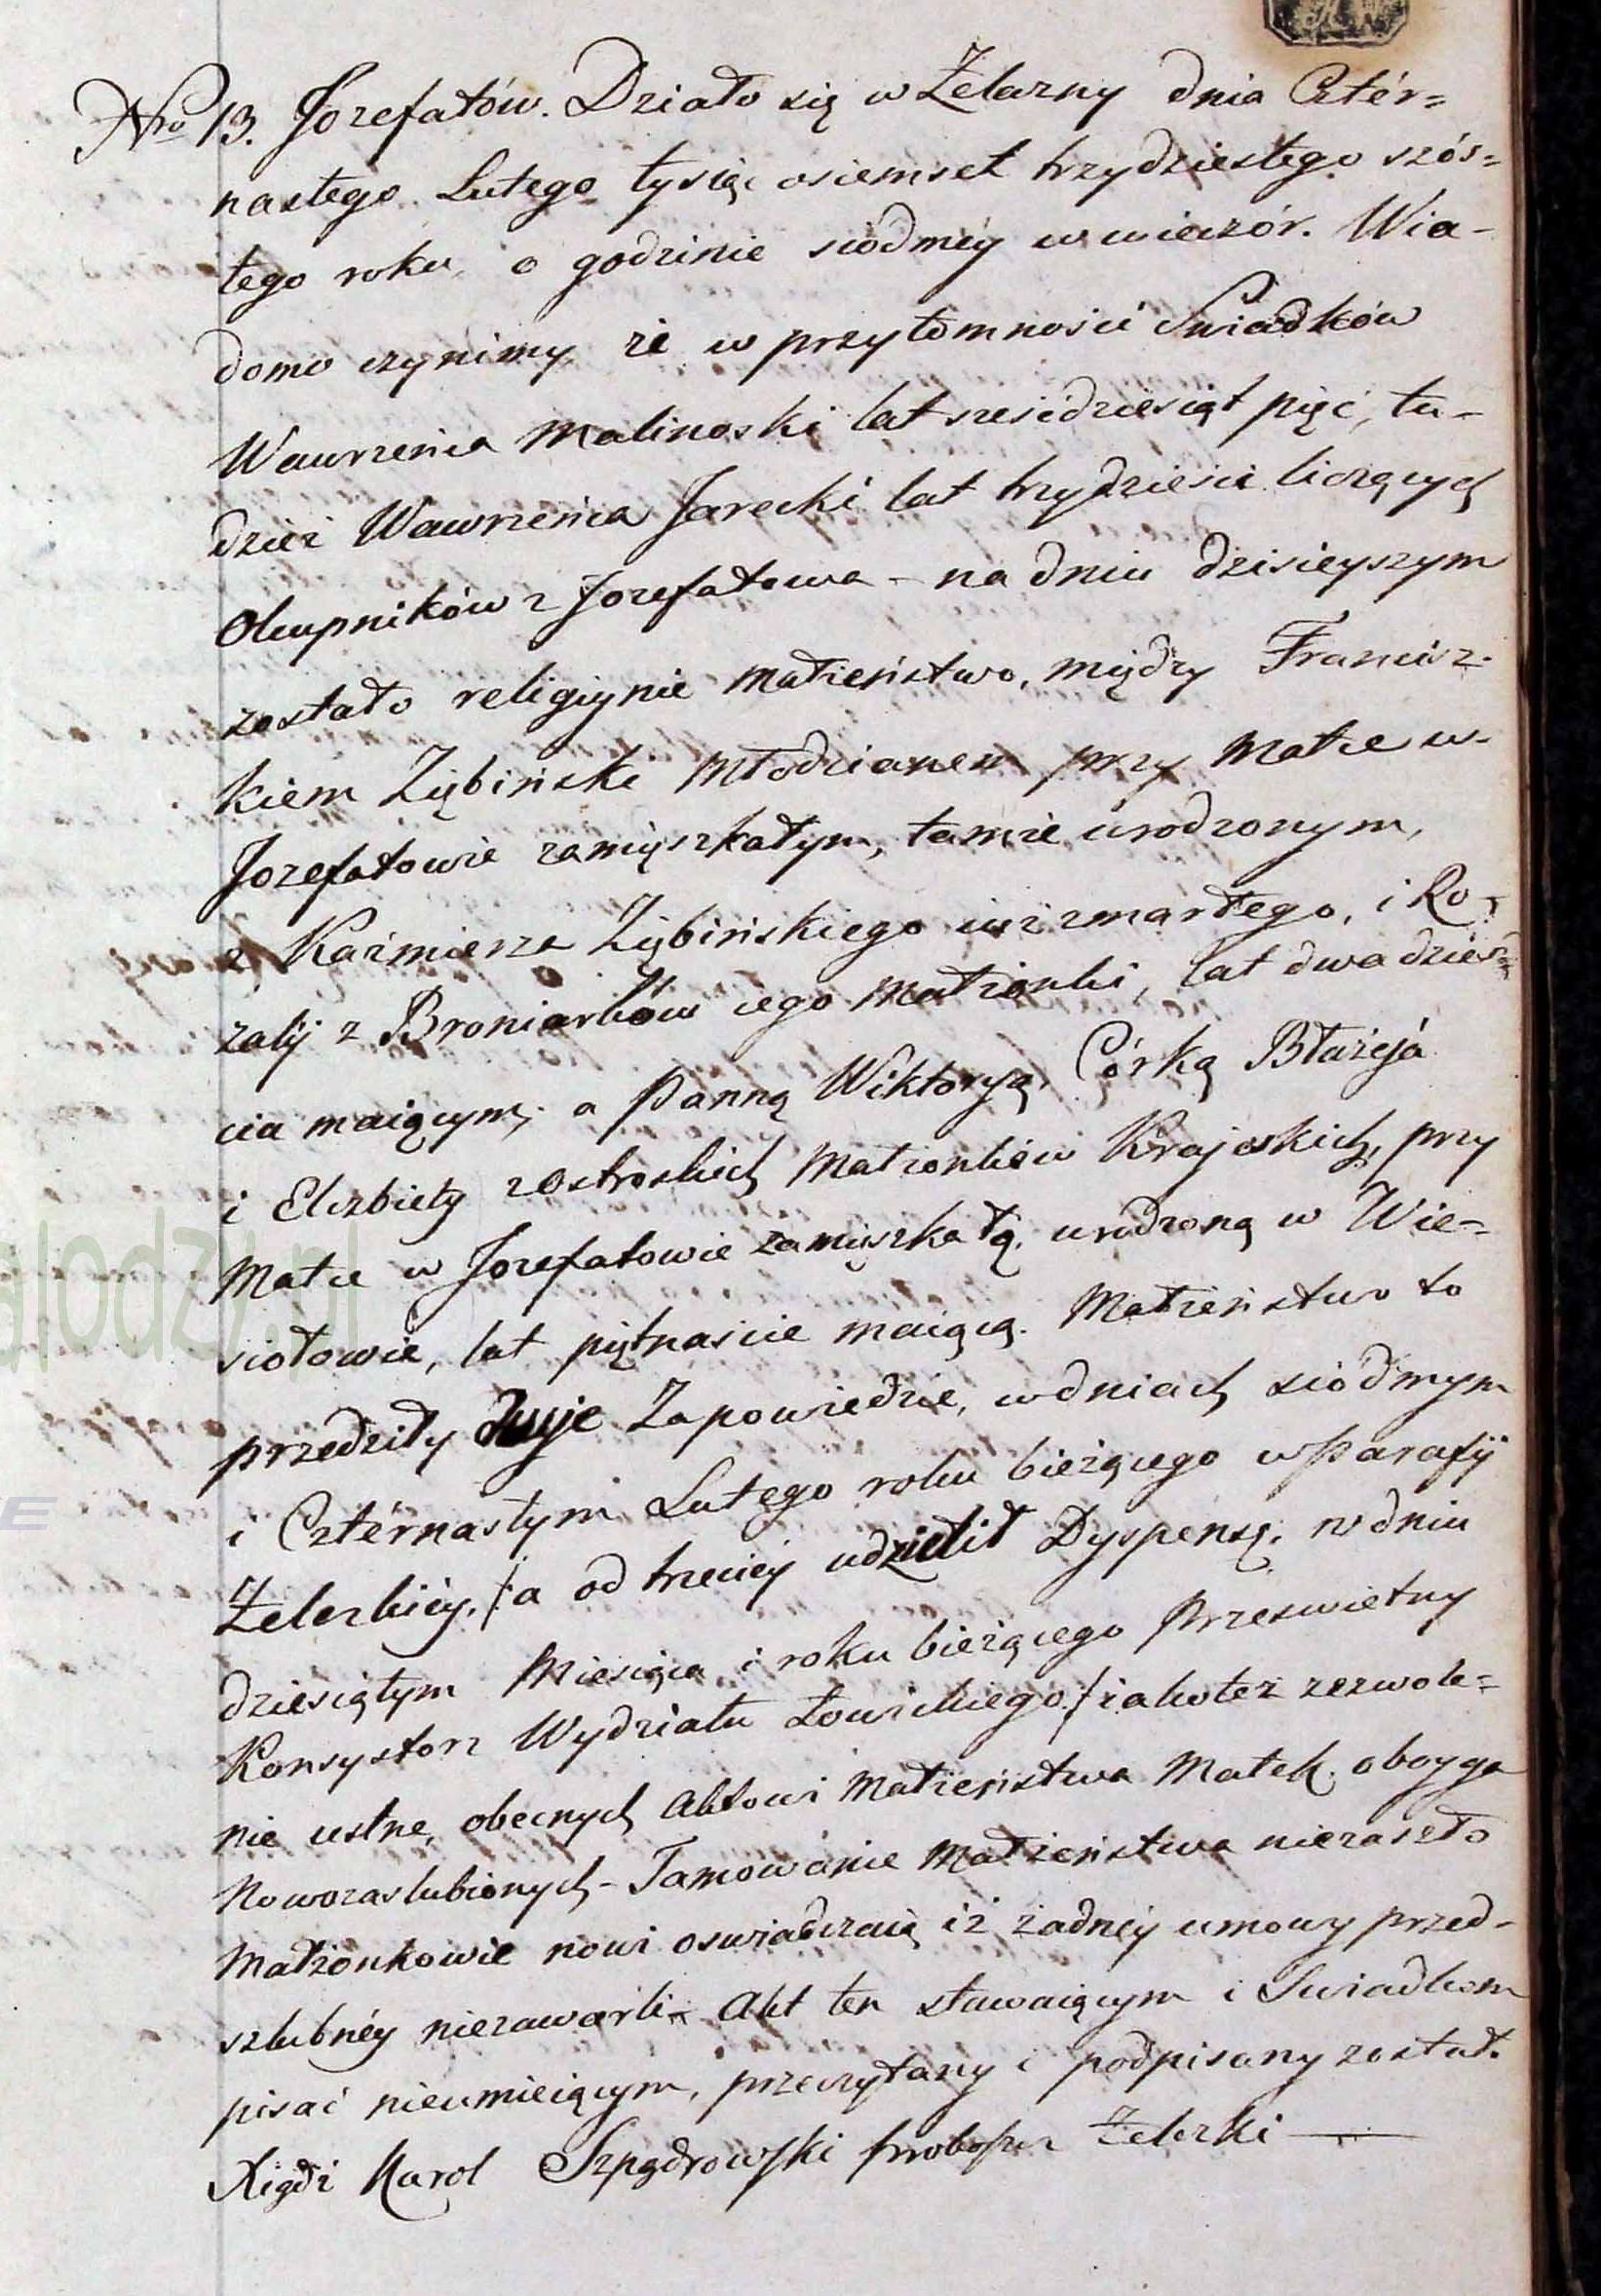 Nro 13. Jozefatów. Działo się w Żelazny dnia Cztér=
nastego Lutego tysiąc osiemset trzydziestego szós=
tego roku, o godzinie siódméy w wieczór. Wia-
domo czynimy że w przytomności Swiadków
Wawrzeńca Malinoski lat sześćdziesiąt pięć, tu-
dzież Wawrzeńca Jarecki lat trzydzieści liczących
Okupników z Jozefatowa - na dniu dzisieyszym
zostało religiynie Małżeństwo, między Francisz-
kiem Ziębiński Młodzianem przy Matce w-
Jozefatowie zamięszkałym, tamże urodzonym,
z Kaźmierza Ziębińskiego iuż zmarłego, i Ro-
zalij z Broniarków iego Małżonki, lat dwadzieś
cia maiącym; a Panną Wiktoryą, Córką Błażeja
i Elżbiety z Ostroskich Małżonków Krajoskich, przy
Matce w Jozefatowie zamięszkałą, urodzoną w Wie-
siołowie, lat piętnaście maiącą. Małżeństwo to
przedziły dwje Zapowiedzie, w dniach siódmym
i Cztérnastym Lutego roku bieżącego w Parafij
Żelezkiéy, /:a od trzeciéy udzielił Dyspensę, w dniu
dziesiątym Miesiąca i roku bieżącego Prześwietny
Konsystorz Wydziału Łowickiego:/ iako też zezwole=
nie ustne, obecnych Aktowi Małżeństwa Matek oboyga
Nowozaslubionych - Tamowanie Małżeństwa niezaszło
Małżonkowie nowi oswiadczaią iż żadnéy umowy przed-
szlubnéy niezawarli - Akt ten stawaiącym i Swiadkom
pisać nieumieiącym, przeczytany i podpisany został.
Xiądz Karol Szpądrowski Proboszcz Żelezki
alodzy.pl
E